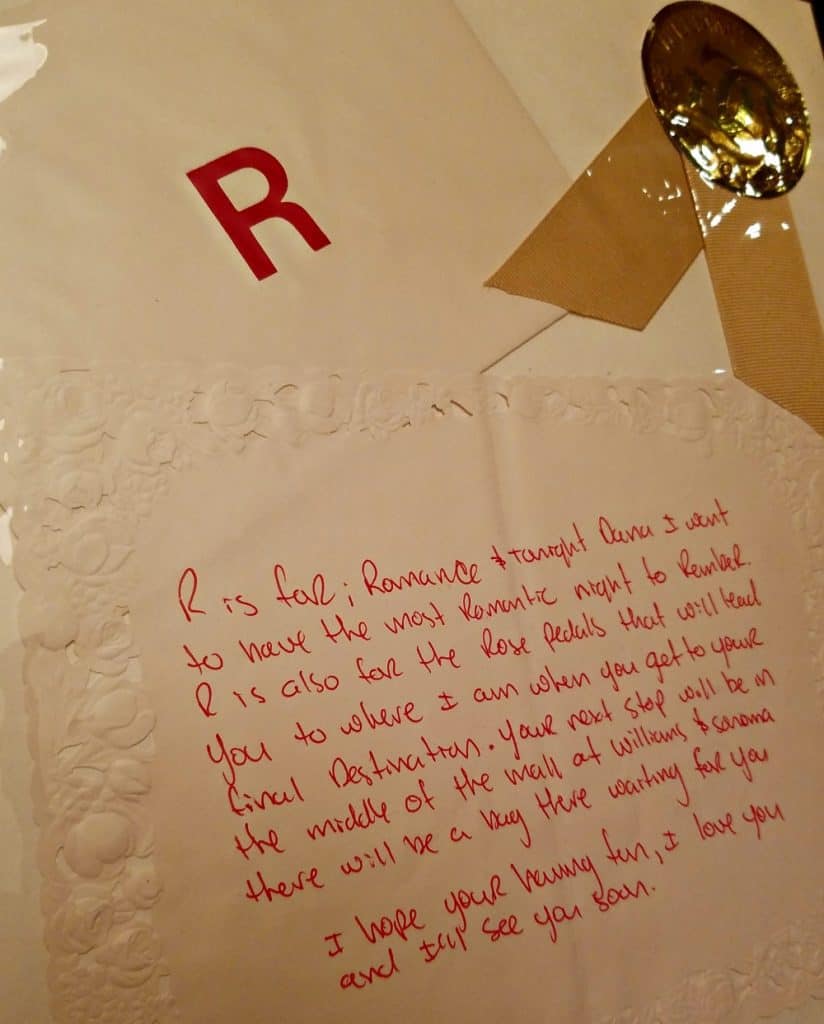 R
R is for; Romance & tonight Dana I want
to have the most Romantic night to Rember.
R is also for the Rose Pedals that will lead
you to where I am when you get to your
final Destination. your next stop will be in
the middle of the mall at Williams & sonoma
there will be a bag there waiting for you
I hope your having fun, I love you
and I'll see you soon.